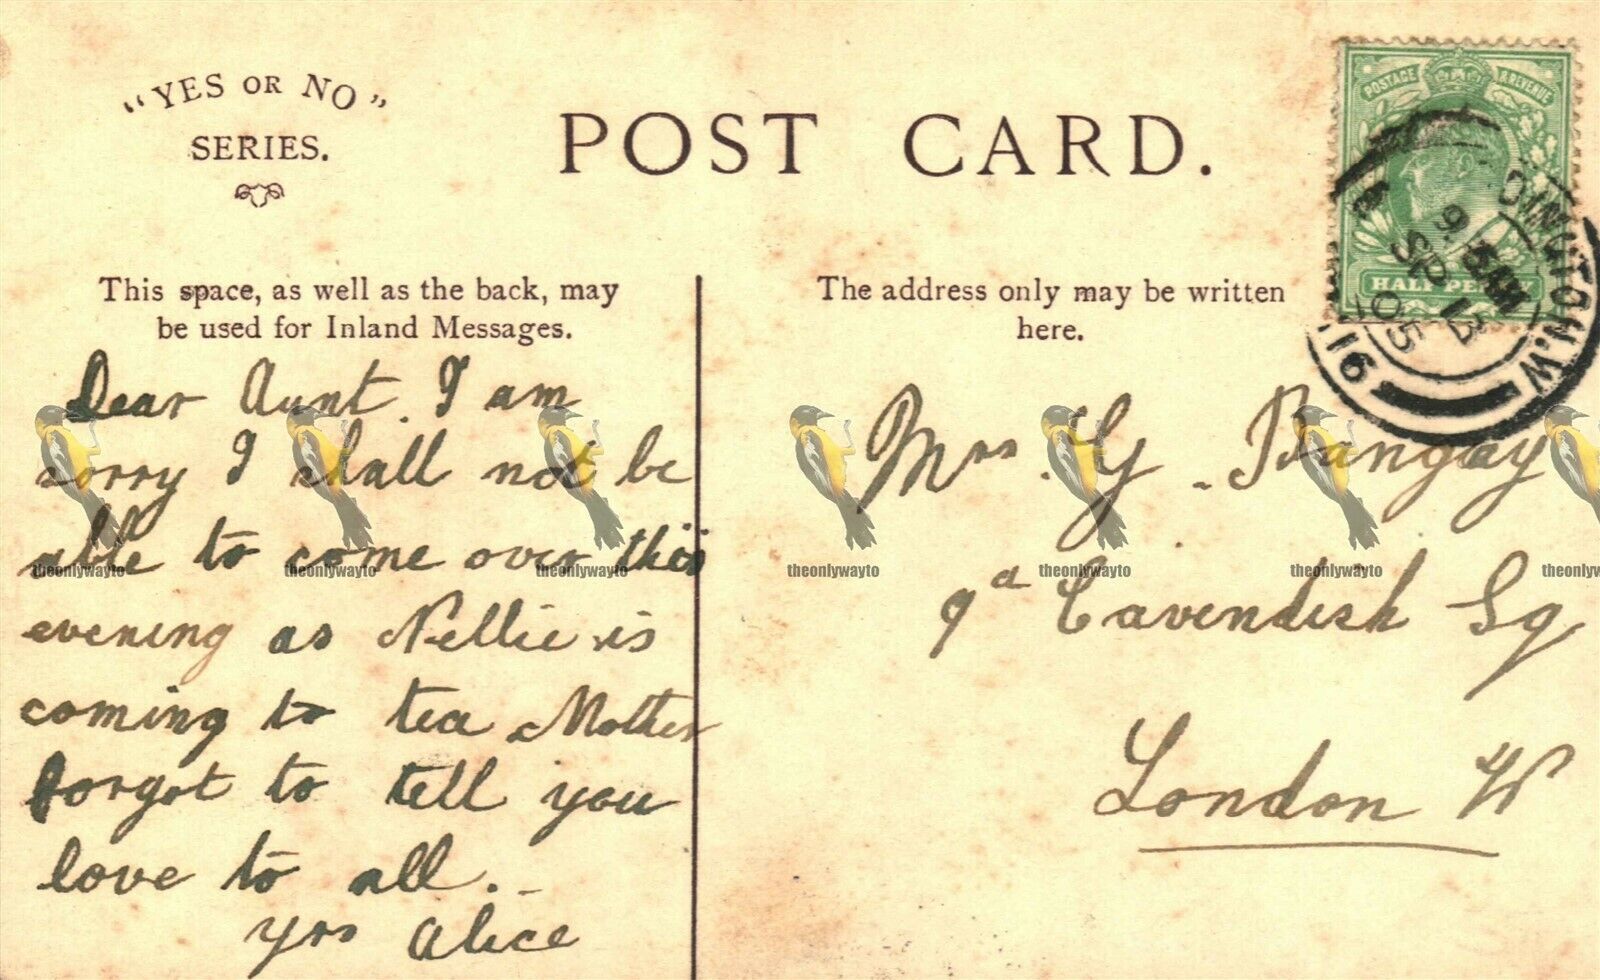 "YES OR NO"
SERIES.
POST CARD.
This space, as well as the back, may
be used for Inland Messages.
The address only may be written
here.
POSTAGE & REVENUE
HALF PENNY
DINGTON.W
9 15 AM
SP 13
05
16
Dear Aunt. I am
sorry I shall not be
able to come over this
evening as Nellie is
coming to tea Mother
forgot to tell you
love to all.
yrs Alice
Mrs. G. Bungay
9a Cavendish Sq
London W
theonlywayto theonlywayto theonlywayto theonlywayto theonlywayto theonlywayto theonlywayto